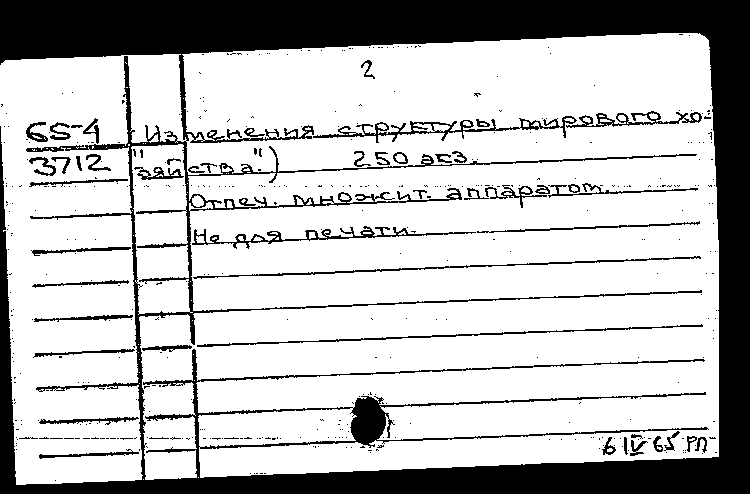 2
65-4 Изменения структуры мирового хо-
3712 "зяйства".) 250 экз.
Отпеч. множит. аппаратом.
Не для печати.
6 IV 65 РП